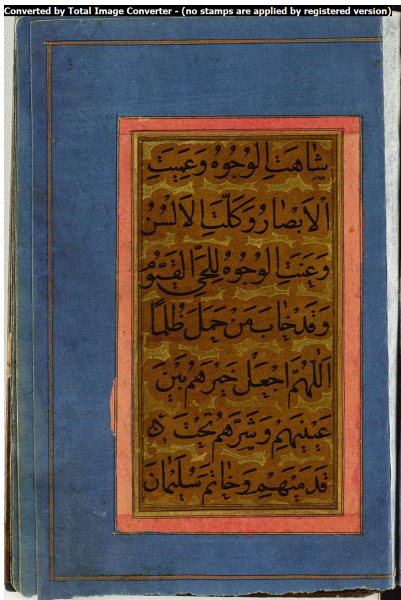 Converted by Total Image Converter - (no stamps are applied by registered version)
شاهَتِ الوُجُوهُ وَعَمِيَتِ
الاَبصارُ وَكَلَّتِ الاَلسُنُ
وَعَنَتِ الوُجُوهُ لِلحَیِّ القَيُّومِ
وَقَدخابَ مَن حَمَلَ ظُلمًا
اَللّٰهُمَّ اجعَل خَيرَهُم بَينَ
عَينَيهِم وَشَرَّهُم تَحتَ
قَدَمَيهِم وَخاتَمَ سُلَيمانَ